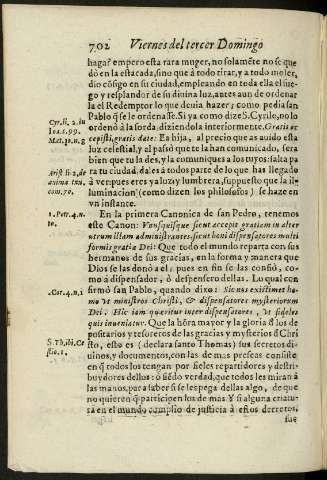 702 Viernes del tercer Domingo
haga? empero esta rara muger, no solamẽte no se que
dò en la estacada, sino que à todo tirar, y a todo moler,
dio cõsigo en su ciudad, empleando en toda ella el fue-
go y resplandor de su diuina luz, antes aun de ordenar
la el Redemptor lo que deuia hazer; como pedia san
Cyr. li. 2. in
Pablo q̃ se le ordenasse. Si ya como dize S. Cyrilo, no lo
Ioa. c. 99.
ordenò à la sorda, diziendola interiormente. Gratis ac
Mat. 10. n. 8
cepisti, gratis date: Ea hija, al precio que as auido esta
luz celestial, y al passo que te la han comunicado, sera
bien que tu la des, y la comuniques a los tuyos: salta pa
Arist. li. 2, de
ra tu ciudad, dales à todos parte de lo que has llegado
anima tex.
à ver pues eres ya luz y lumbrera, supuesto que la il-
com. 70.
luminacion (como dizen los philosofos) se haze en
vn instante.
1. Petr. 4. n.
En la primera Canonica de san Pedro, tenemos
10.
este Canon: Vnusquisque sicut accepit gratiam in alter
utrum illam administrantes sicut boni dispensatores multi
formis gratiæ Dei: Que todo el mundo reparta con sus
hermanos de sus gracias, en la forma y manera que
Dios se las donò a el, pues en fin se las consiò, co-
mo à dispensador, ò despensero dellas. Lo qual con
1. Cor. 4. n. 1
firmò san Pablo, quando dixo: Sic nos existimet ho-
mo vt ministros Christi, & dispensatores mysteriorum
Dei. Hic iam quæritur inter dispensatores, vt fidelis
quis inueniatur. Que la hõra mayor y la gloria d̃ los de
positarios y tesoreros de las gracias y mysterios d̃ Chri
S. Th. ibi. Le
sto, esto es (declara santo Thomas) sus secretos di-
ctio. 1.
uinos, y documentos, con las de mas preseas consiste
en q̃ todos los tengan por fieles repartidores y destri-
buydores dellos: ò siẽdo verdad, que todos les miran à
las manos, pues a saber si se les pega dellas algo, de que
no quieren q̃ participen los de mas. Y si alguna criatu-
ra en el mundo complio de justicia à estos decretos,
fue